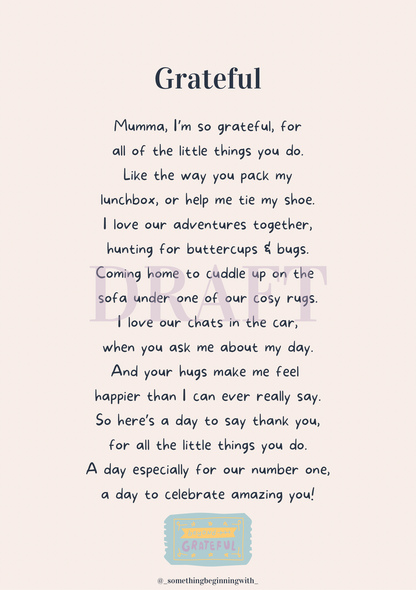 Grateful
Mumma, I'm so grateful, for
all of the little things you do.
Like the way you pack my
lunchbox, or help me tie my shoe.
I love our adventures together,
hunting for buttercups & bugs.
Coming home to cuddle up on the
sofa under one of our cosy rugs.
DRAFT
I love our chats in the car,
when you ask me about my day.
And your hugs make me feel
happier than I can ever really say.
So here's a day to say thank you,
for all the little things you do.
A day especially for our number one,
a day to celebrate amazing you!
GRATEFUL
@_somethingbeginningwith_